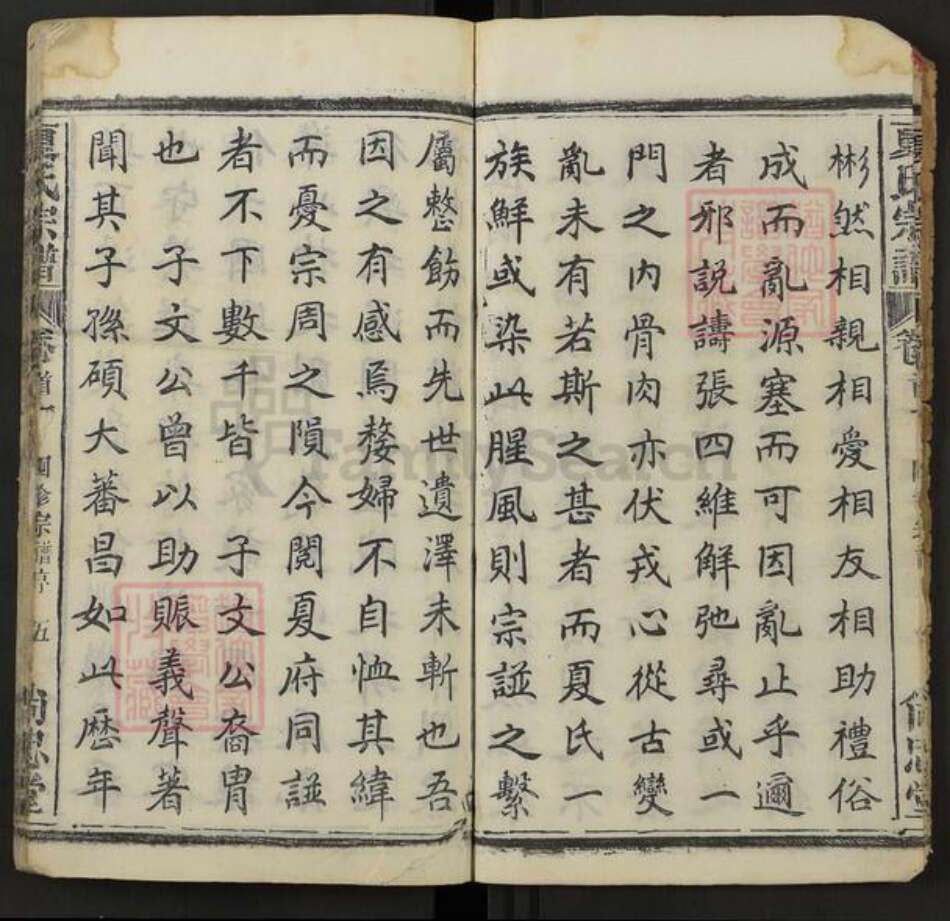 彬然相親相愛相友相助禮俗
成而亂源塞而可因亂止乎邇
者邪説譸張四維解弛尋或一
門之内骨肉亦伏戎心從古變
亂未有若斯之甚者而夏氏一
族鮮或染此腥風則宗諩之繫
屬整飭而先世遺澤未斬也吾
因之有感焉嫠婦不自恤其緯
而憂宗周之隕今閱夏府同諩
者不下數千皆子文公裔胄
也子文公曾以助賑義聲著
聞其子孫碩大蕃昌如此歷年
夏氏宗譜
卷首一
五
尚忠堂
FamilySearch